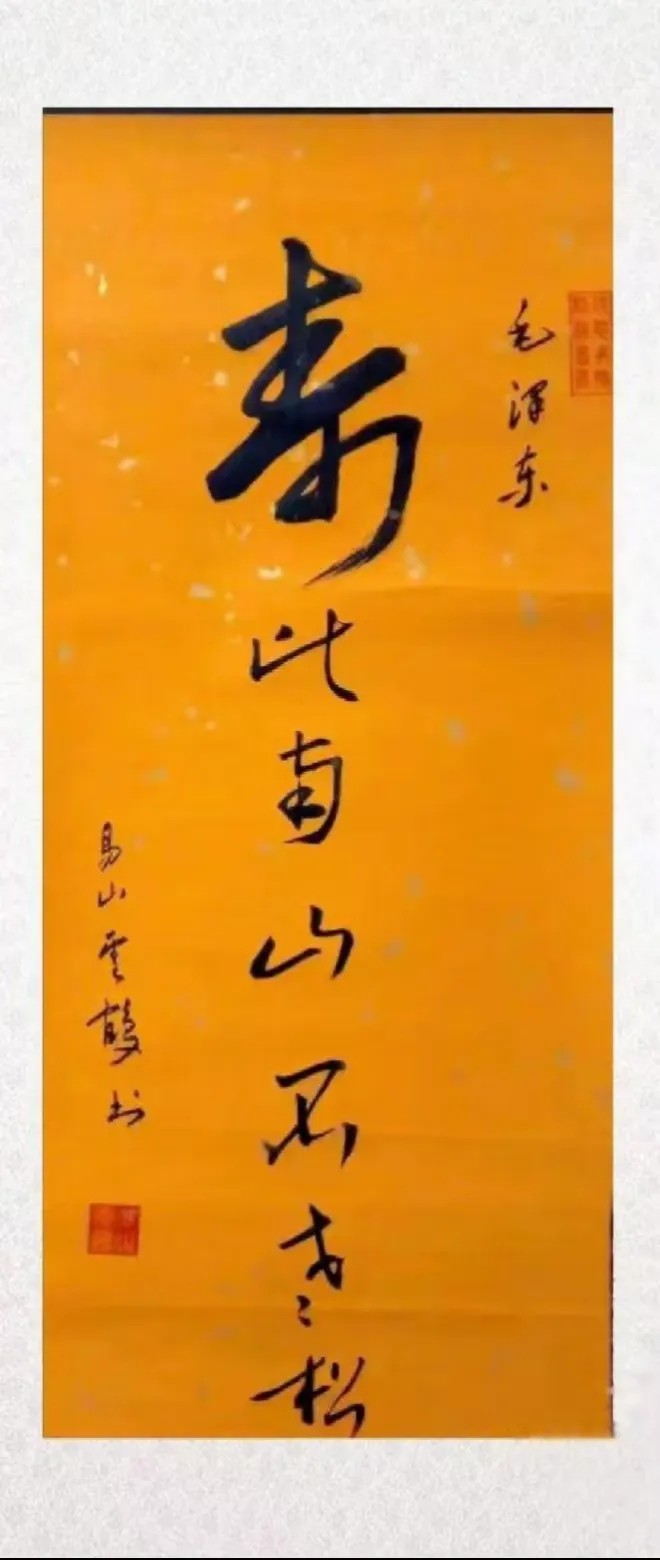 毛澤东
寿比南山不老松
易山雲鶴书